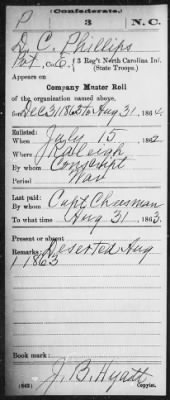 (Confederate.)
P 3 N. C.
D. C. Phillips
Pvt, Co. E, 3 Reg't North Carolina Inf.
(State Troops.)
Appears on
Company Muster Roll
of the organization named above,
for Dec 31 1863 to Aug 31, 1864.
Enlisted:
When July 15, 1862
Where Raleigh
By whom Conscript
Period War
Last paid:
By whom Capt Cheesman
To what time Aug 31, 1863.
Present or absent
Remarks: Deserted Aug
1 1863
Book mark:
J. B. Hyatt
(642) Copyist.